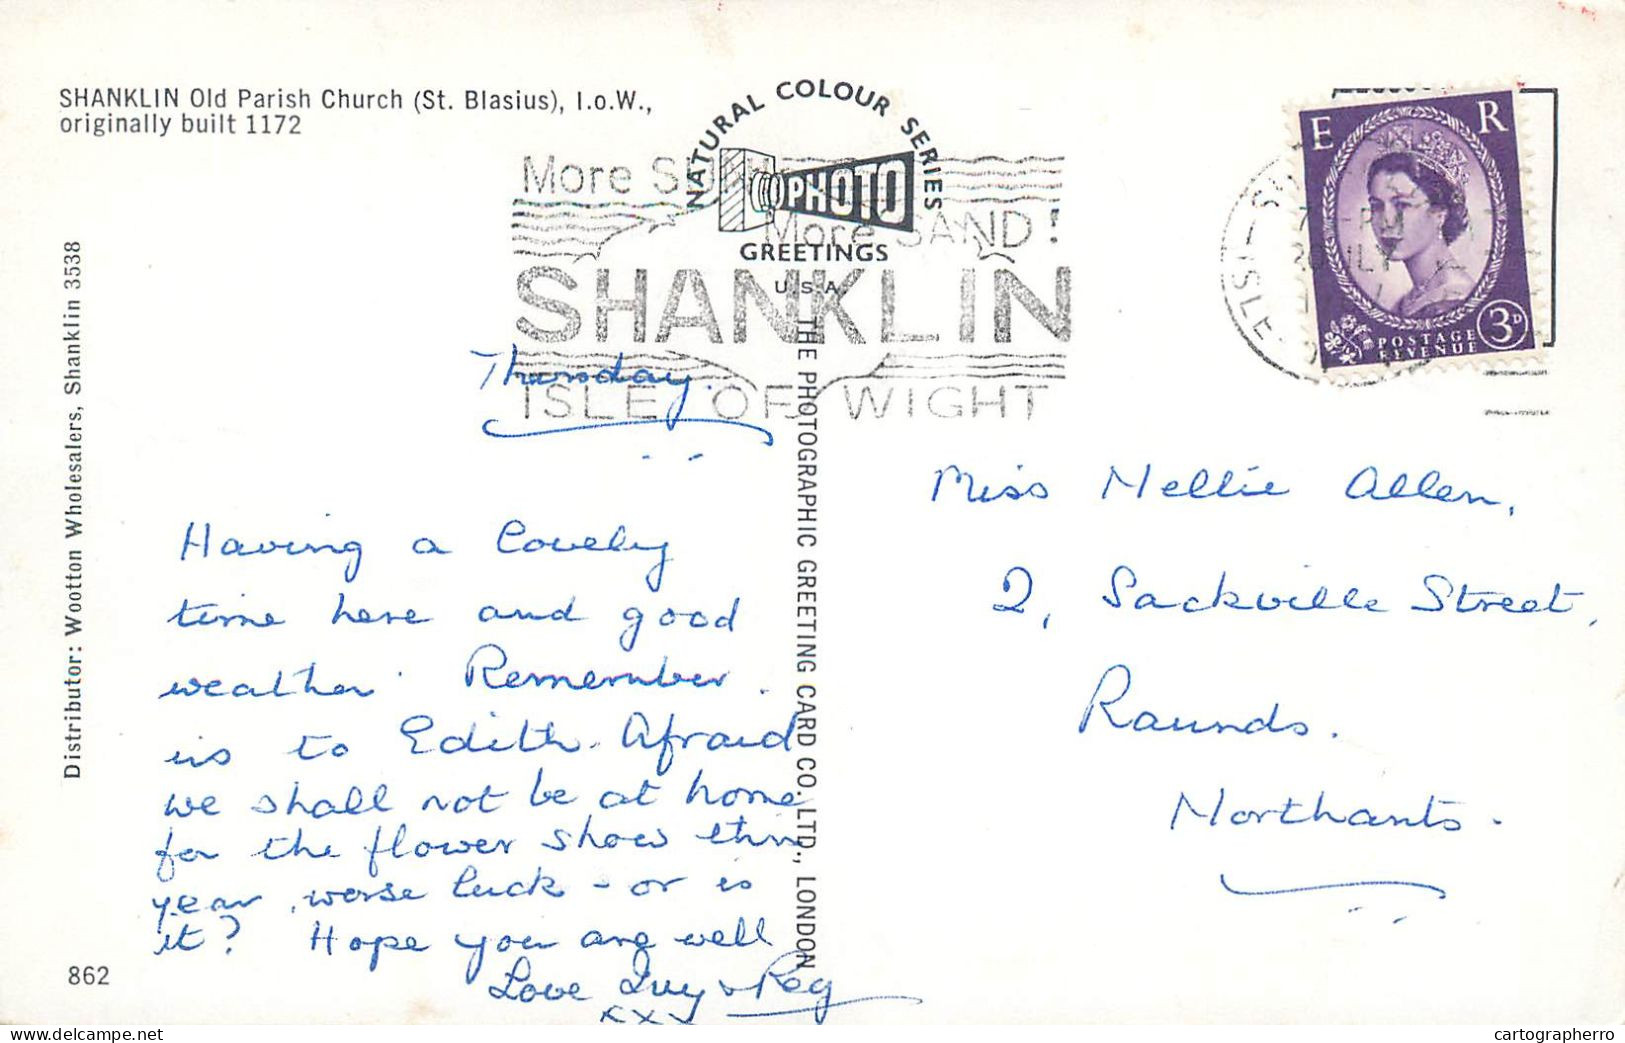 SHANKLIN Old Parish Church (St. Blasius), I.o.W.,
originally built 1172
NATURAL COLOUR SERIES
PHOTO
GREETINGS
U.S.A.
More
More SAND!
SHANKLIN
ISLE OF WIGHT
E R
3D
POSTAGE
REVENUE
7 - PM
JLY
ISLE
Distributor: Wootton Wholesalers, Shanklin 3538
THE PHOTOGRAPHIC GREETING CARD CO. LTD., LONDON
Thursday.
Having a lovely
time here and good
weather. Remember
us to Edith. Afraid
we shall not be at home
for the flower show this
year, worse luck - or is
it? Hope you are well
Love Ivy & Reg
xxx
Miss Nellie Allen,
2, Sackville Street,
Raunds.
Northants.
862
cartographerro